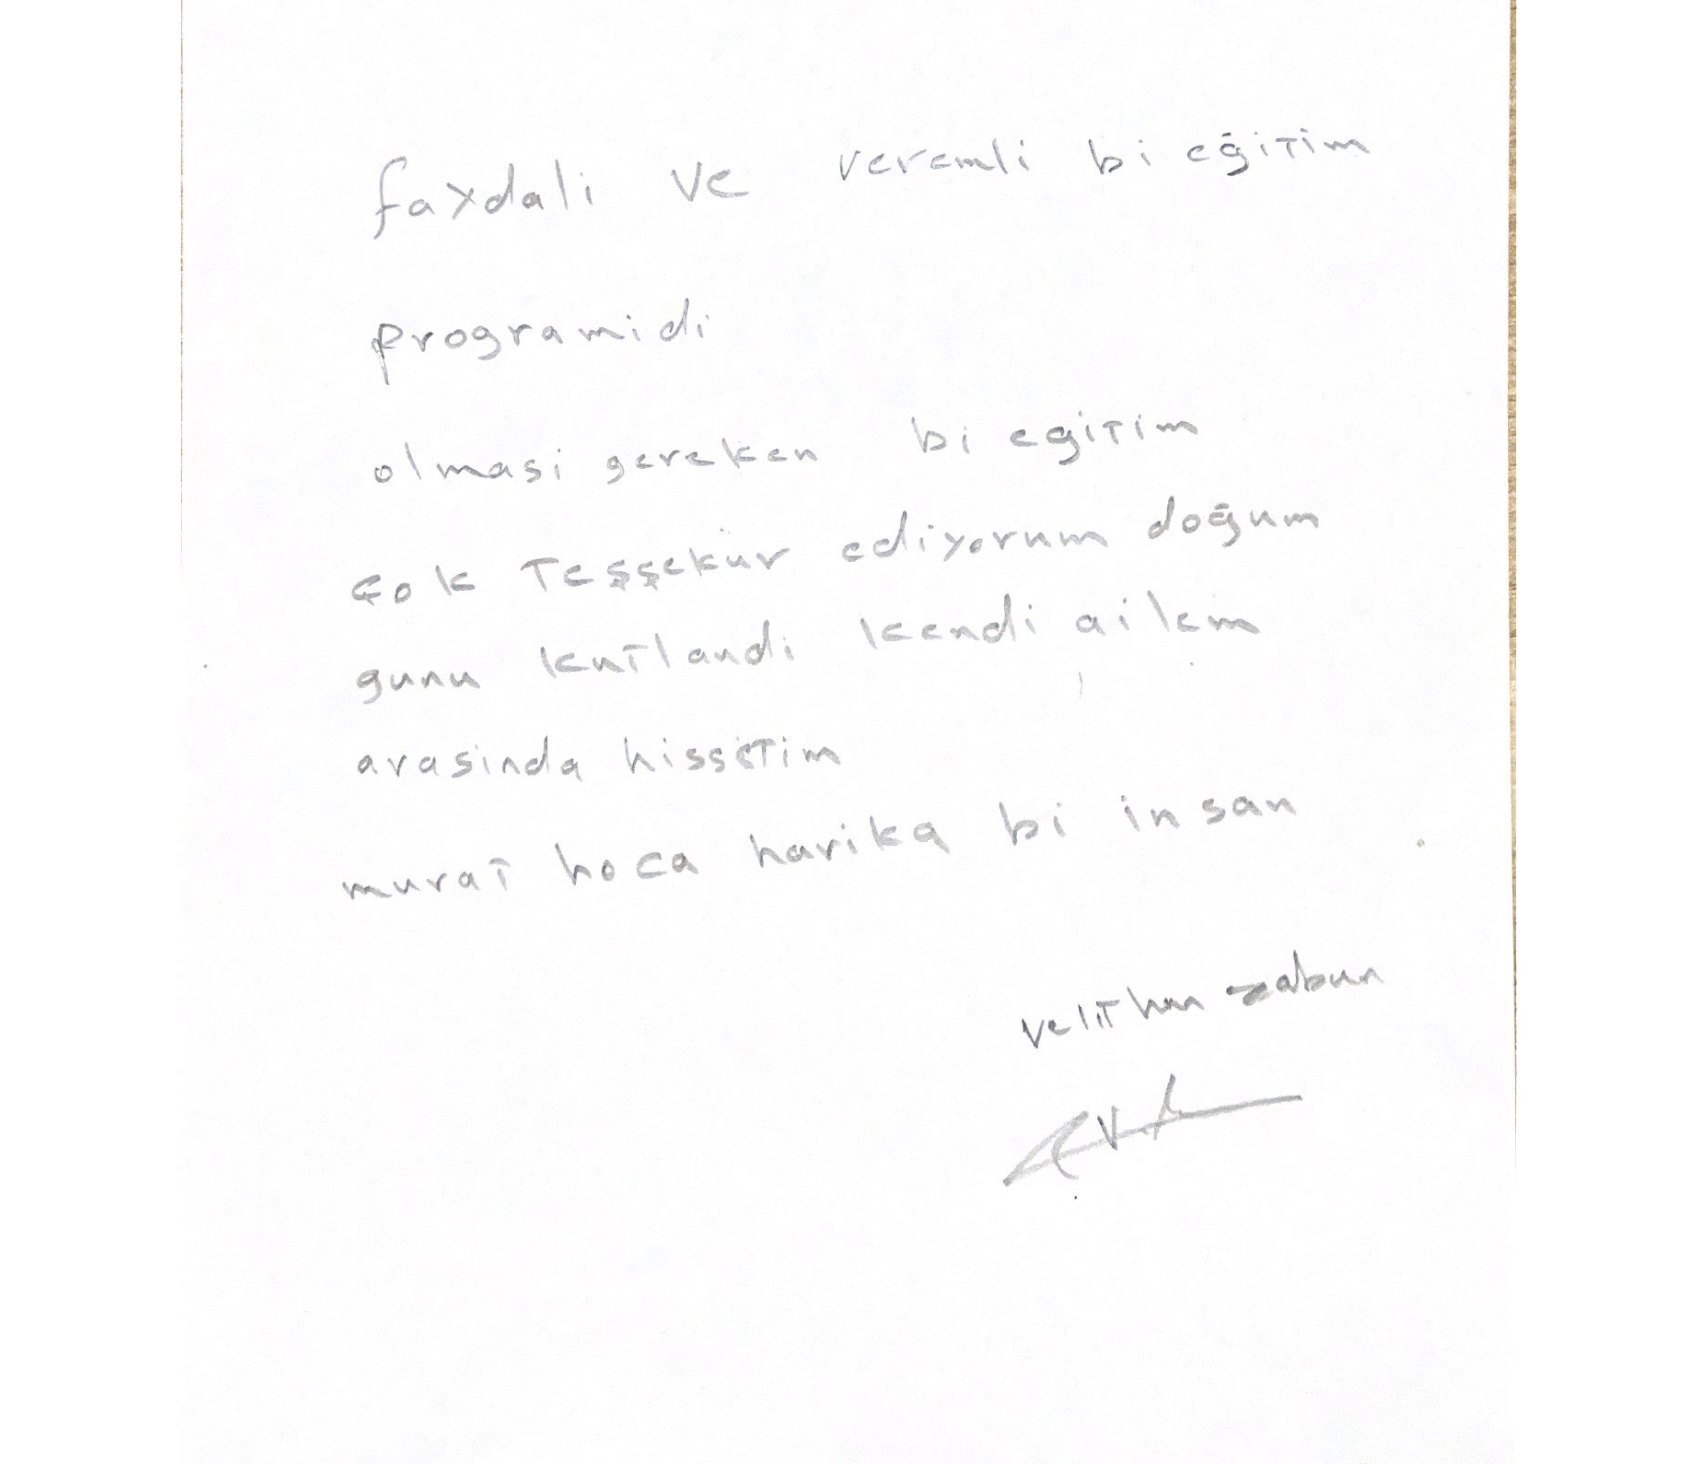 faydali ve veremli bi eğitim
programidi
olmasi gereken bi egitim
çok Teşşekür ediyorum doğum
gunu kutlandi kendi ailem
arasinda hissetim
murat hoca harika bi insan
zabun